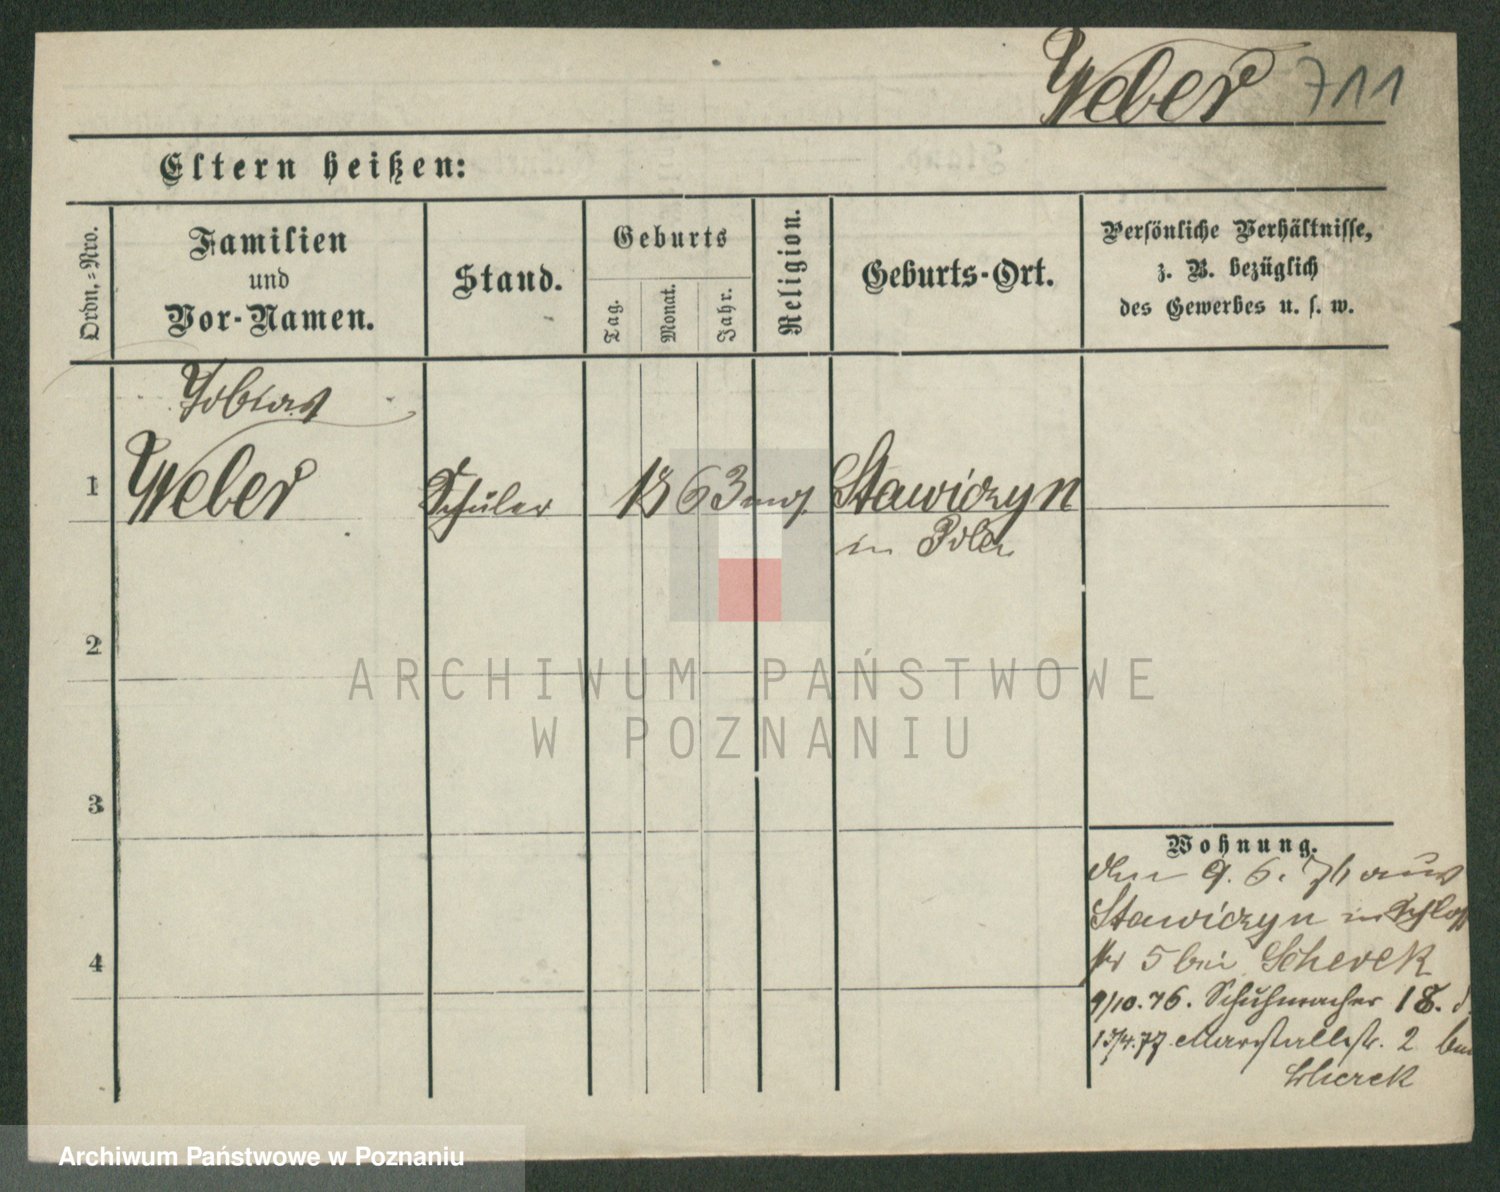 Weber 711
Eltern heißen:
Ordn.-Nro.
Familien
und
Vor-Namen.
Stand.
Geburts
Tag.
Monat.
Jahr.
Religion.
Geburts-Ort.
Persönliche Verhältnisse,
z. B. bezüglich
des Gewerbes u. s. w.
Tobias
1 Weber Schüler 1863 mos. Stawiczyn
in Polen
2
3
4
Wohnung.
den 9. 6. 76 aus
Stawiczyn in
5 bei Scherek
9/10.76. Schuhmacher 18.
13/4.77 Marstallstr. 2
Scherek
ARCHIWUM PAŃSTWOWE
W POZNANIU
Archiwum Państwowe w Poznaniu